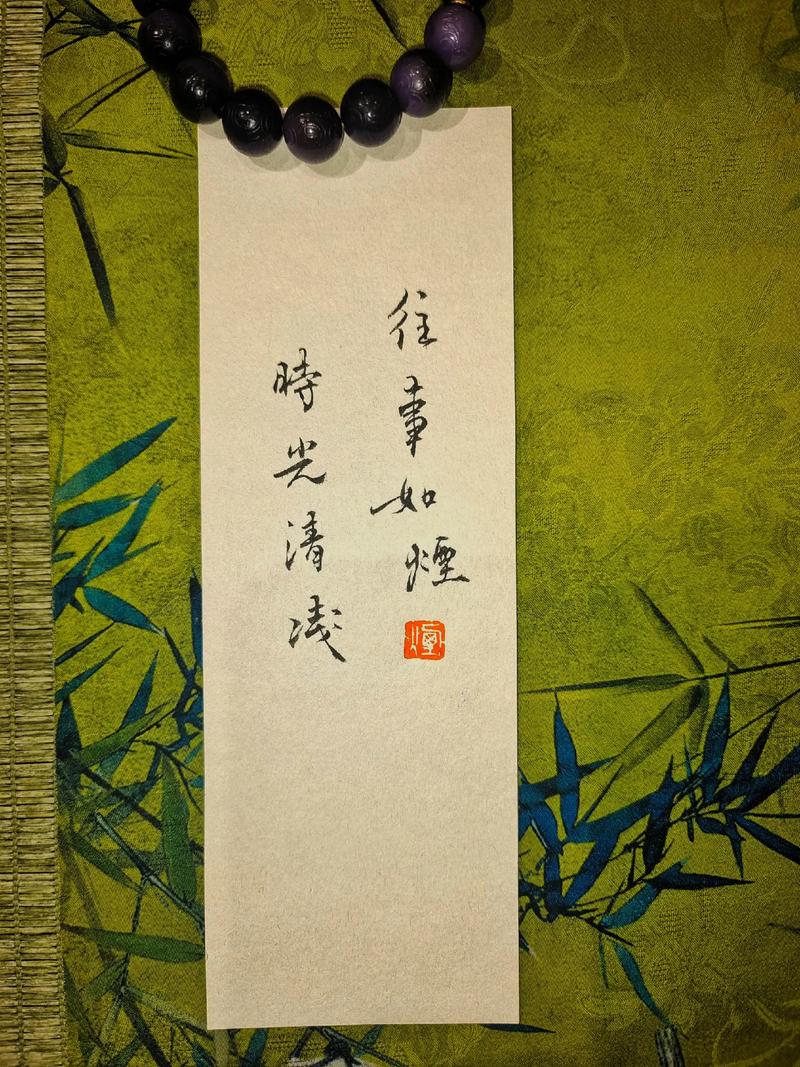 往事如煙
時光清浅